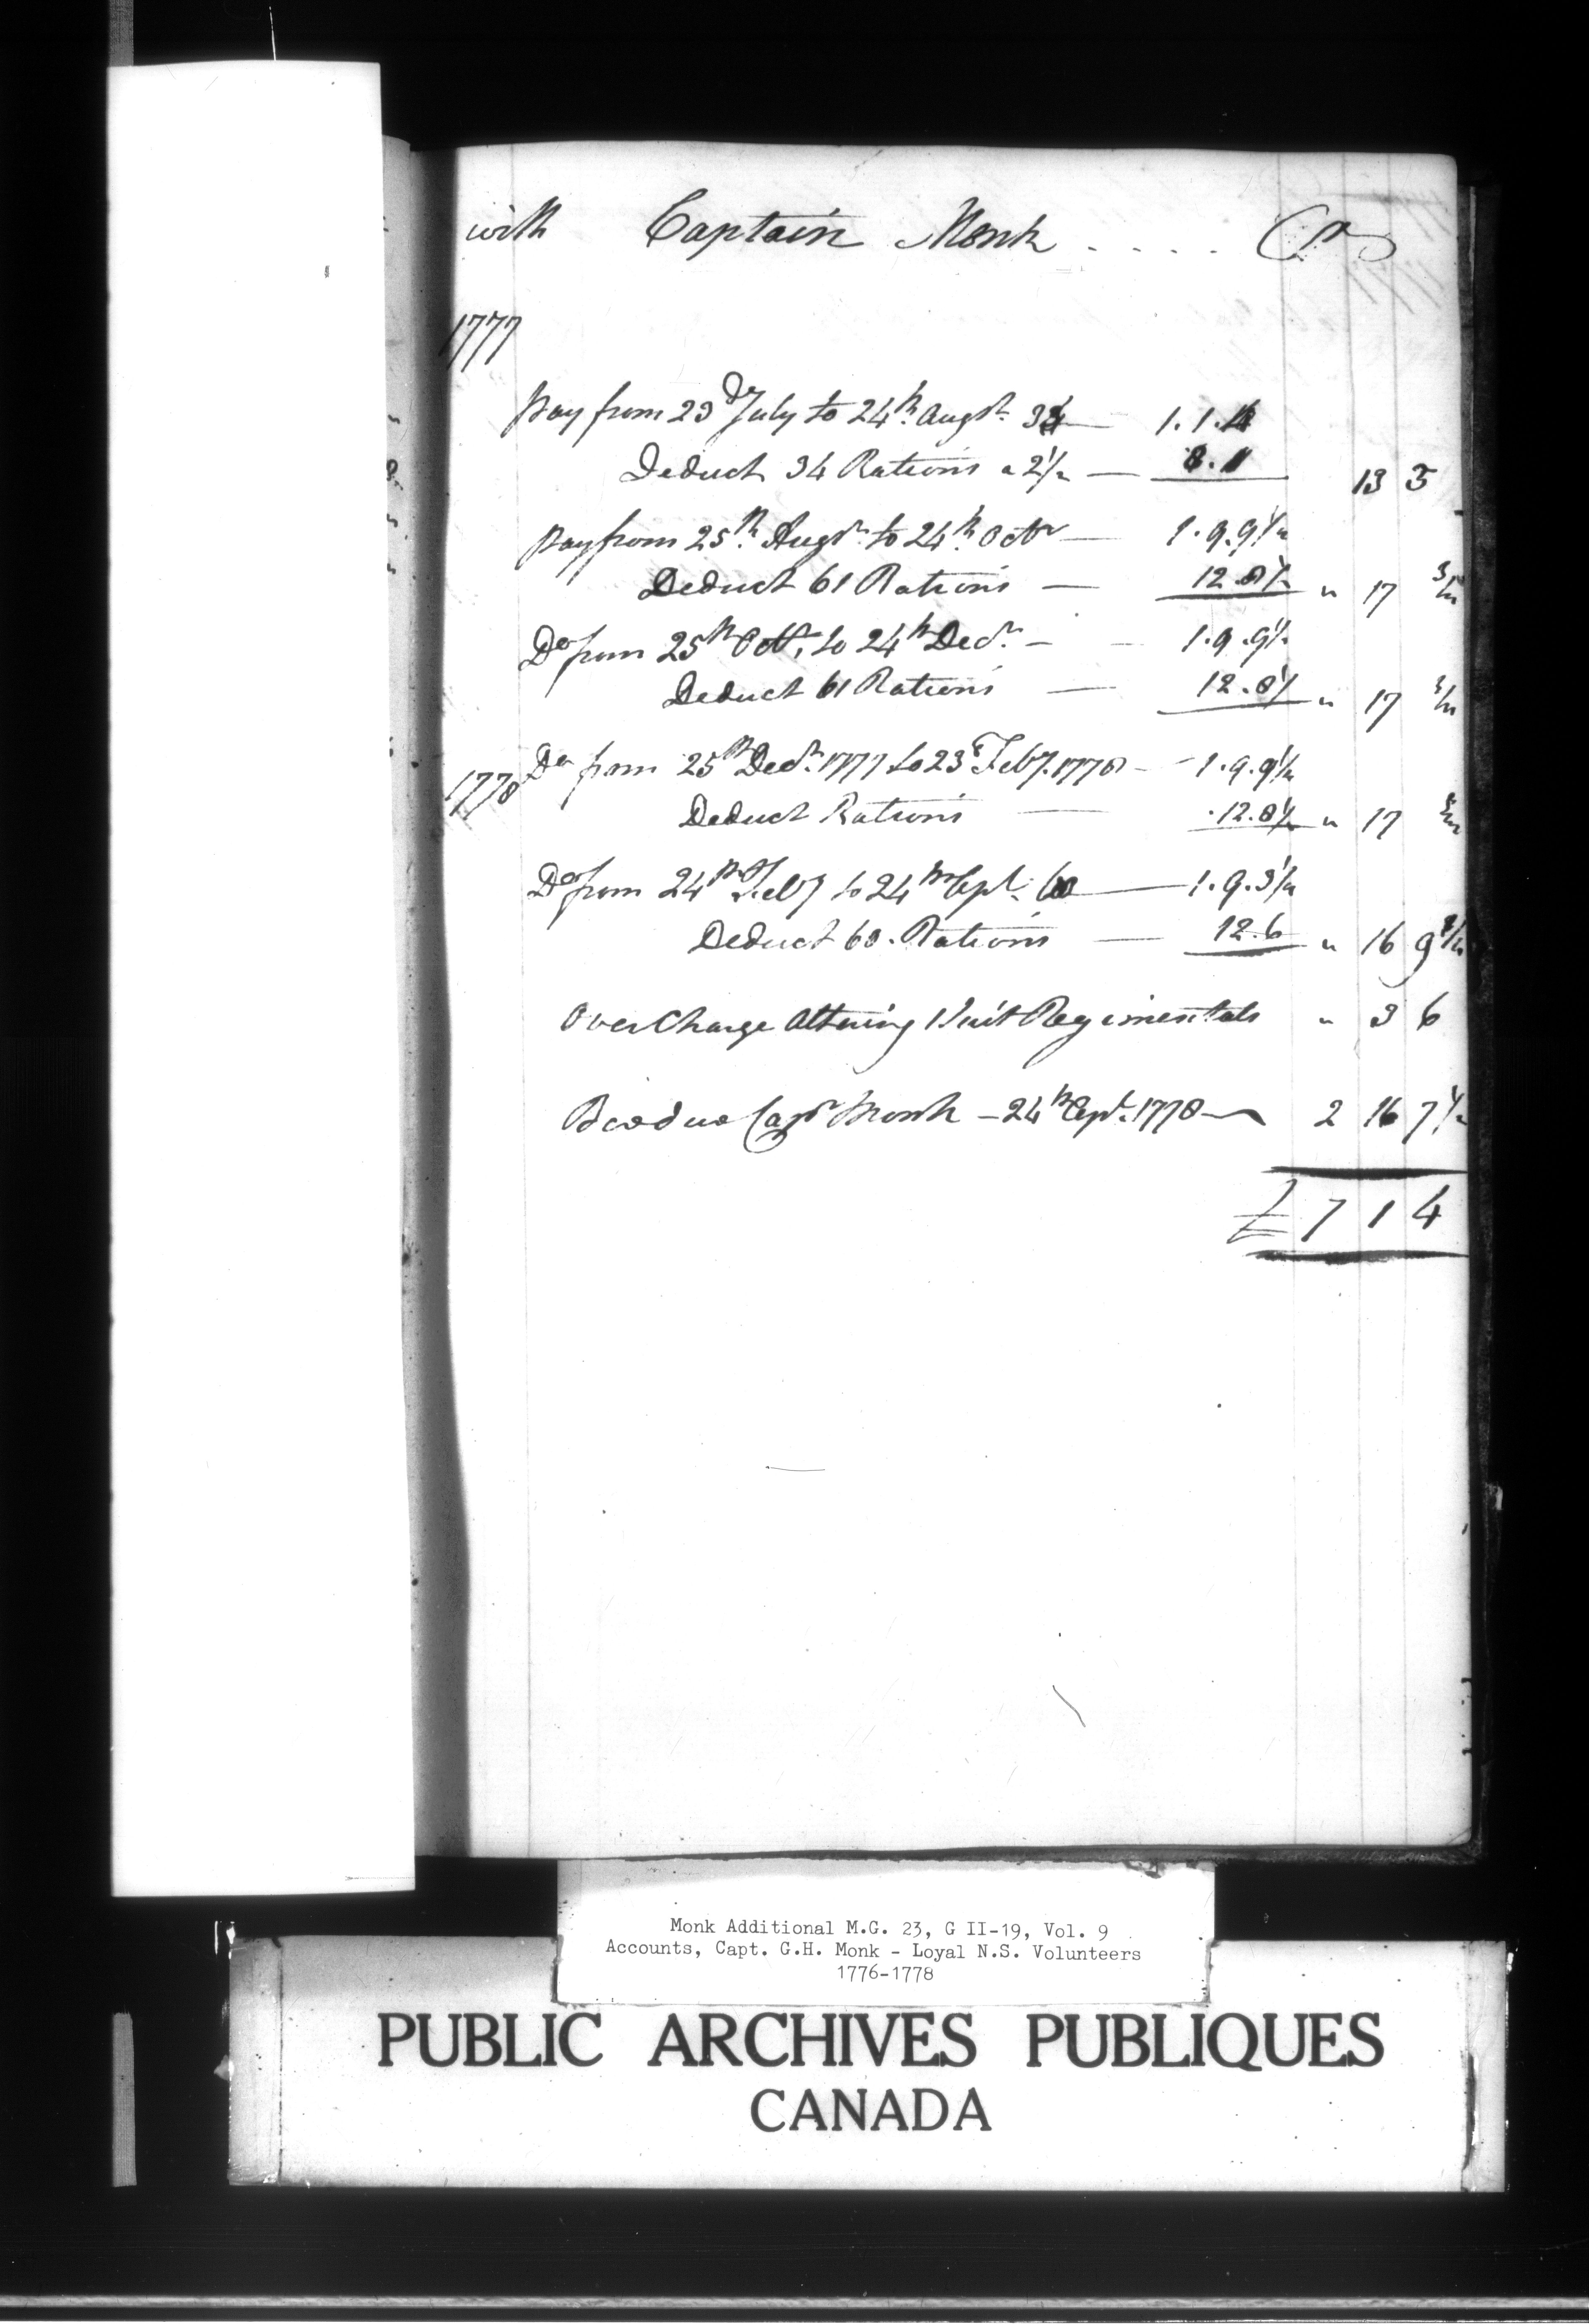 with Captain Monk . . . . Cr
1777
pay from 23d July to 24th. Augst. 34 — 1.1.
Deduct 34 Rations a 2½ — 8.1 13 5
pay from 25th. Augst. to 24th. Octr — 1.9.9½
Deduct 61 Rations — 12.8½ " 17
Do from 25th Octr. to 24th Decr. — 1.9.9½
Deduct 61 Rations — 12.8½ " 17
1778 Do from 25th Decr. 1777 to 23d Feby. 1778 — 1.9.9½
Deduct Rations — .12.8½ " 17
Do from 24th Feby to 24th Apl. 60 — 1.9.3½
Deduct 60. Rations — 12.6 " 16 9
Over Charge Altering Suit Regimentals " 3 6
due Capt Monk — 24th Apl. 1778 — 2 16 7½
£ 7 1 4
Monk Additional M.G. 23, G II-19, Vol. 9
Accounts, Capt. G.H. Monk - Loyal N.S. Volunteers
1776-1778
PUBLIC ARCHIVES PUBLIQUES
CANADA